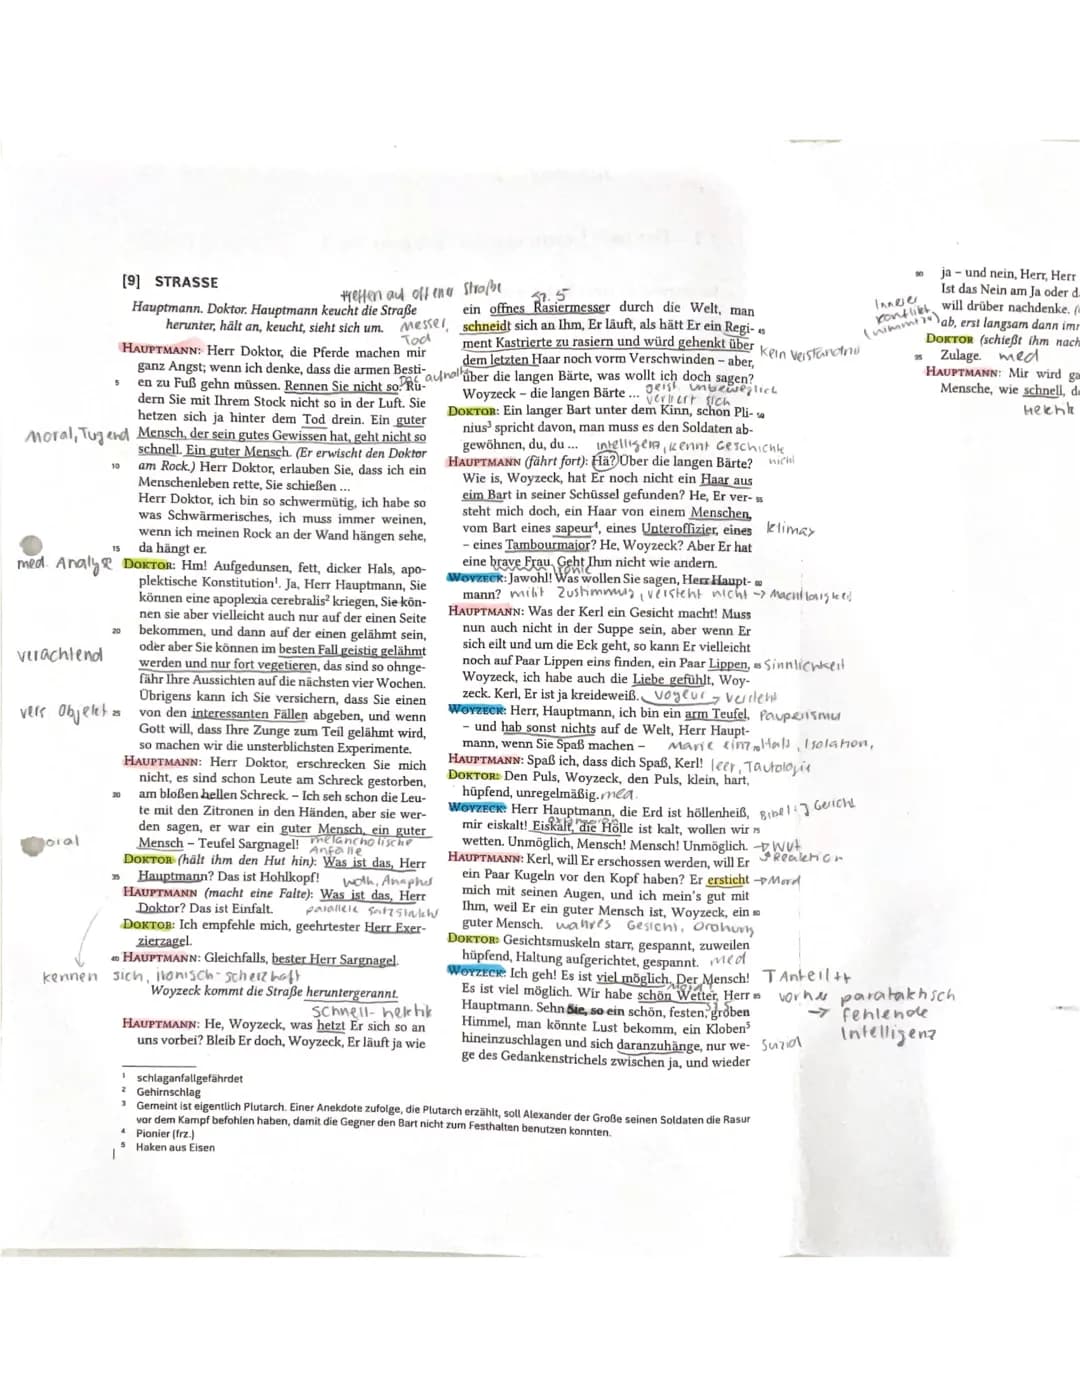 [9] STRASSE
treffen auf offener Straße
Hauptmann. Doktor. Hauptmann keucht die Straße
herunter, hält an, keucht, sieht sich um.
Messer,
Tod
HAUPTMANN: Herr Doktor, die Pferde machen mir
ganz Angst; wenn ich denke, dass die armen Besti-
5 en zu Fuß gehn müssen. Rennen Sie nicht so. Ru-
dern Sie mit Ihrem Stock nicht so in der Luft. Sie
hetzen sich ja hinter dem Tod drein. Ein guter
Moral, Tugend
Mensch, der sein gutes Gewissen hat, geht nicht so
schnell. Ein guter Mensch. (Er erwischt den Doktor
10 am Rock.) Herr Doktor, erlauben Sie, dass ich ein
Menschenleben rette, Sie schießen ...
Herr Doktor, ich bin so schwermütig, ich habe so
was Schwärmerisches, ich muss immer weinen,
wenn ich meinen Rock an der Wand hängen sehe,
15 da hängt er.
med. Analyse
DOKTOR: Hm! Aufgedunsen, fett, dicker Hals, apo-
plektische Konstitution¹. Ja, Herr Hauptmann, Sie
können eine apoplexia cerebralis² kriegen, Sie kön-
nen sie aber vielleicht auch nur auf der einen Seite
20 bekommen, und dann auf der einen gelähmt sein,
oder aber Sie können im besten Fall geistig gelähmt
verachtend
werden und nur fort vegetieren, das sind so ohnge-
fähr Ihre Aussichten auf die nächsten vier Wochen.
Übrigens kann ich Sie versichern, dass Sie einen
vers Objekt
25 von den interessanten Fällen abgeben, und wenn
Gott will, dass Ihre Zunge zum Teil gelähmt wird,
so machen wir die unsterblichsten Experimente.
HAUPTMANN: Herr Doktor, erschrecken Sie mich
nicht, es sind schon Leute am Schreck gestorben,
30 am bloßen hellen Schreck. – Ich seh schon die Leu-
te mit den Zitronen in den Händen, aber sie wer-
den sagen, er war ein guter Mensch, ein guter
Mensch – Teufel Sargnagel!
melancholische
Anfälle
DOKTOR (hält ihm den Hut hin): Was ist das, Herr
35 Hauptmann? Das ist Hohlkopf!
woth, Anapher
HAUPTMANN (macht eine Falte): Was ist das, Herr
Doktor? Das ist Einfalt.
parallele Satzstruktur
DOKTOR: Ich empfehle mich, geehrtester Herr Exer-
zierzagel.
40 HAUPTMANN: Gleichfalls, bester Herr Sargnagel.
kennen sich, ironisch-scherzhaft
Woyzeck kommt die Straße heruntergerannt.
schnell-hektik
HAUPTMANN: He, Woyzeck, was hetzt Er sich so an
uns vorbei? Bleib Er doch, Woyzeck, Er läuft ja wie
Sz. 5
ein offnes Rasiermesser durch die Welt, man
schneidt sich an Ihm, Er läuft, als hätt Er ein Regi- 45
ment Kastrierte zu rasiern und würd gehenkt über
kein Verständnis
dem letzten Haar noch vorm Verschwinden – aber,
über die langen Bärte, was wollt ich doch sagen?
Woyzeck – die langen Bärte ...
geist. unbeweglich
verliert sich
DOKTOR: Ein langer Bart unter dem Kinn, schon Pli- 50
nius³ spricht davon, man muss es den Soldaten ab-
gewöhnen, du, du ...
intelligent, kennt Geschichte
HAUPTMANN (fährt fort): Hä? Über die langen Bärte?
nicht
Wie is, Woyzeck, hat Er noch nicht ein Haar aus
eim Bart in seiner Schüssel gefunden? He, Er ver- 55
steht mich doch, ein Haar von einem Menschen,
vom Bart eines sapeur⁴, eines Unteroffizier, eines
Klimax
– eines Tambourmajor? He, Woyzeck? Aber Er hat
eine brave Frau. Geht Ihm nicht wie andern.
Ironie
WOYZECK: Jawohl! Was wollen Sie sagen, Herr Haupt- 60
mann?
milit Zustimmung, versteht nicht → Machtlosigkeit
HAUPTMANN: Was der Kerl ein Gesicht macht! Muss
nun auch nicht in der Suppe sein, aber wenn Er
sich eilt und um die Eck geht, so kann Er vielleicht
noch auf Paar Lippen eins finden, ein Paar Lippen, 65
Sinnlichkeit
Woyzeck, ich habe auch die Liebe gefühlt, Woy-
zeck. Kerl, Er ist ja kreideweiß.
Voyeur → versteht
WOYZECK: Herr, Hauptmann, ich bin ein arm Teufel,
Pauperismus
– und hab sonst nichts auf de Welt, Herr Haupt-
mann, wenn Sie Spaß machen –
Marie einz. Halt, Isolation,
HAUPTMANN: Spaß ich, dass dich Spaß, Kerl!
leer, Tautologie
DOKTOR: Den Puls, Woyzeck, den Puls, klein, hart,
hüpfend, unregelmäßig.
med.
WOYZECK: Herr Hauptmann, die Erd ist höllenheiß,
Bibel: J Gericht
mir eiskalt! Eiskalt, die Hölle ist kalt, wollen wir 75
wetten. Unmöglich, Mensch! Mensch! Unmöglich.
→ Wut
Reaktion
HAUPTMANN: Kerl, will Er erschossen werden, will Er
ein Paar Kugeln vor den Kopf haben? Er ersticht
→ Mord
mich mit seinen Augen, und ich mein's gut mit
Ihm, weil Er ein guter Mensch ist, Woyzeck, ein 80
guter Mensch.
wahres Gesicht, Drohung
DOKTOR: Gesichtsmuskeln starr, gespannt, zuweilen
hüpfend, Haltung aufgerichtet, gespannt.
med
WOYZECK: Ich geh! Es ist viel möglich. Der Mensch!
TAnteil ++
Mord!
Es ist viel möglich. Wir habe schön Wetter, Herr 85
vorher parataktisch
→ fehlende
Intelligenz
Hauptmann. Sehn Sie, so ein schön, festen, groben
Himmel, man könnte Lust bekomm, ein Kloben⁵
hineinzuschlagen und sich daranzuhänge, nur we-
Suizid
ge des Gedankenstrichels zwischen ja, und wieder
90 ja – und nein, Herr, Herr
Ist das Nein am Ja oder d
Innerer
Konflikt
will drüber nachdenke.
ab, erst langsam dann imr
DOKTOR (schießt ihm nach
95 Zulage.
med
HAUPTMANN: Mir wird ga
Mensche, wie schnell, d
Hektik
¹ schlaganfallgefährdet
² Gehirnschlag
³ Gemeint ist eigentlich Plutarch. Einer Anekdote zufolge, die Plutarch erzählt, soll Alexander der Große seinen Soldaten die Rasur
vor dem Kampf befohlen haben, damit die Gegner den Bart nicht zum Festhalten benutzen konnten.
⁴ Pionier (frz.)
⁵ Haken aus Eisen